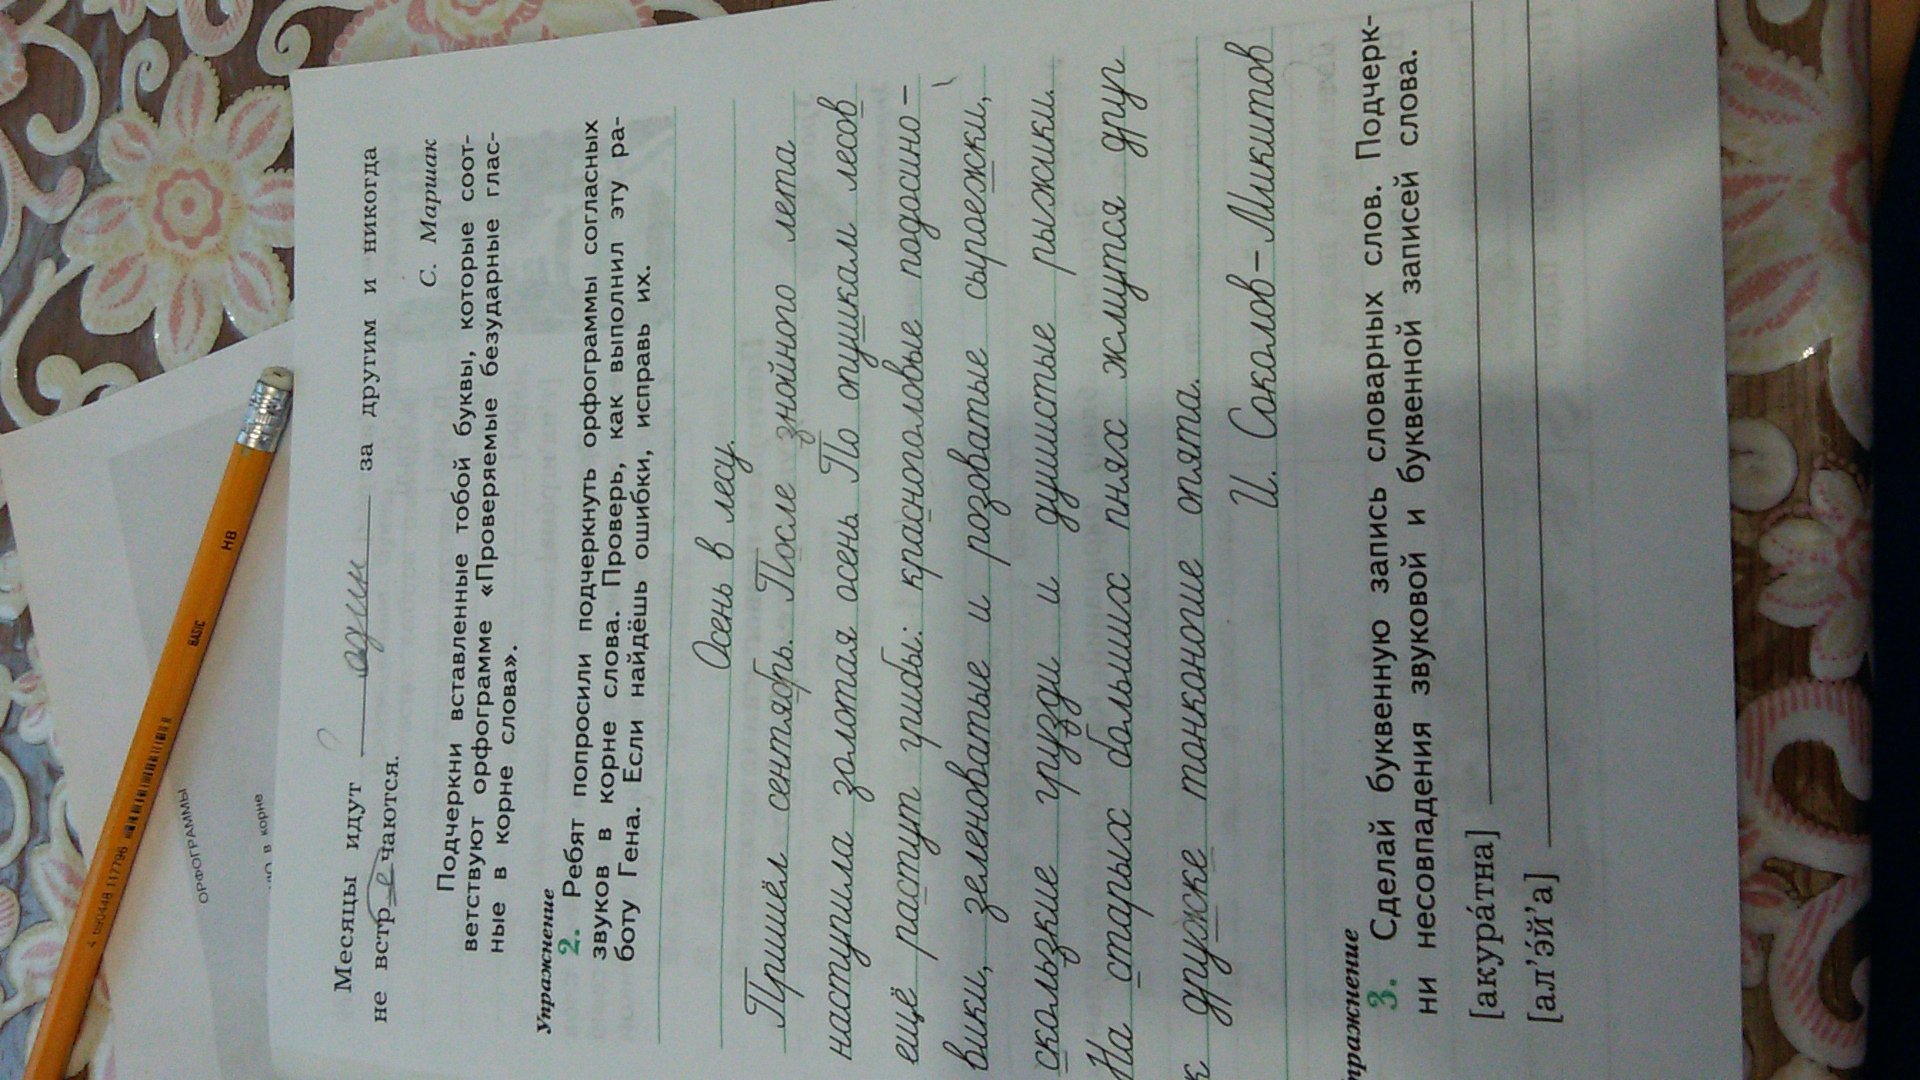 ОРФОГРАММЫ
в корне
BASIC
HB
Месяцы идут один за другим и никогда
не встречаются.
С. Маршак
Подчеркни вставленные тобой буквы, которые соот-
ветствуют орфограмме «Проверяемые безударные глас-
ные в корне слова».
Упражнение
2. Ребят попросили подчеркнуть орфограммы согласных
звуков в корне слова. Проверь, как выполнил эту ра-
боту Гена. Если найдёшь ошибки, исправь их.
Осень в лесу.
Пришёл сентябрь. После знойного лета
наступила золотая осень. По опушкам лесов
ещё растут грибы: красноголовые подосино-
вики, зеленоватые и розоватые сыроежки,
скользкие грузди и душистые рыжики.
На старых больших пнях жмутся друг
к дружке тонконогие опята.
И. Соколов-Микитов
ражнение
3. Сделай буквенную запись словарных слов. Подчерк-
ни несовпадения звуковой и буквенной записей слова.
[акура́тна]
[ал'э́й'а]